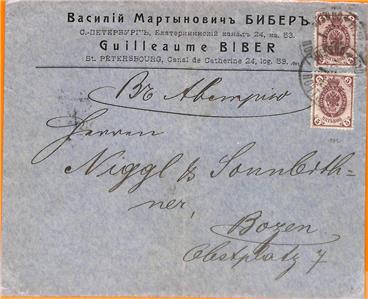 Василій Мартыновичъ БИБЕРЪ
С.-ПЕТЕРБУРГЪ, Екатерининскій каналъ 24, кв. 53.
Guilleaume BIBER
St. PÉTERSBOURG, Canal de Catherine 24, log. 53.
Въ Австрію
Herren
Niggl & Sonnberth-
ner,
Bozen
Obstplatz 7